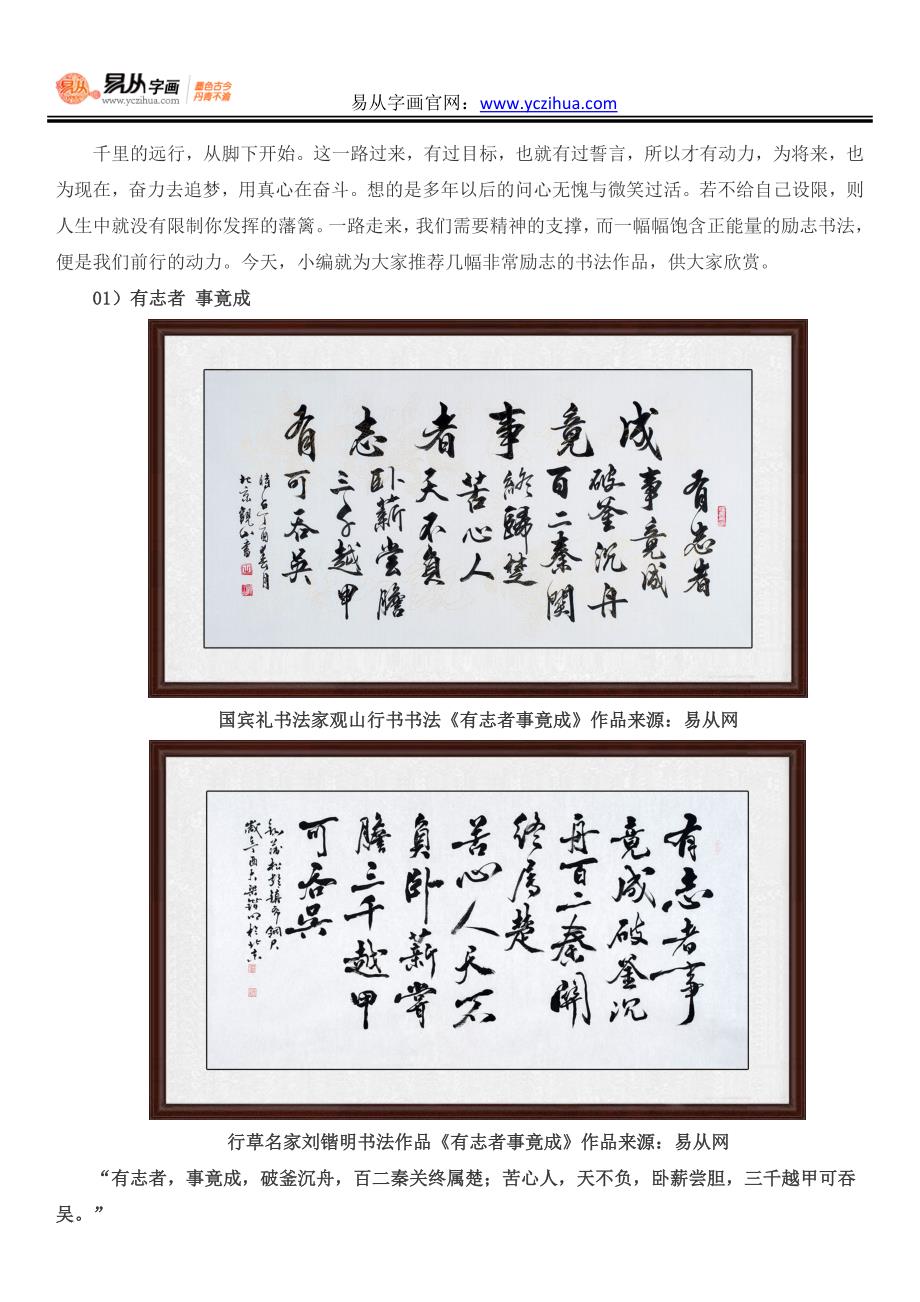 易从字画
www.yczihua.com
墨色古今
丹青不渝
易从字画官网：www.yczihua.com
千里的远行，从脚下开始。这一路过来，有过目标，也就有过誓言，所以才有动力，为将来，也
为现在，奋力去追梦，用真心在奋斗。想的是多年以后的问心无愧与微笑过活。若不给自己设限，则
人生中就没有限制你发挥的藩篱。一路走来，我们需要精神的支撑，而一幅幅饱含正能量的励志书法，
便是我们前行的动力。今天，小编就为大家推荐几幅非常励志的书法作品，供大家欣赏。
01）有志者 事竟成
有志者事竟成
有志者
事竟成
破釜沉舟
百二秦関
終歸楚
苦心人
天不負
卧薪尝膽
三千越甲
可吞吴
北京觀山書
国宾礼书法家观山行书书法《有志者事竟成》作品来源：易从网
有志者事
竟成破釜沉
舟百二秦關
终属楚
苦心人天不
負卧薪嘗
膽三千越甲
可吞吳
行草名家刘锴明书法作品《有志者事竟成》作品来源：易从网
“有志者，事竟成，破釜沉舟，百二秦关终属楚；苦心人，天不负，卧薪尝胆，三千越甲可吞
吴。”